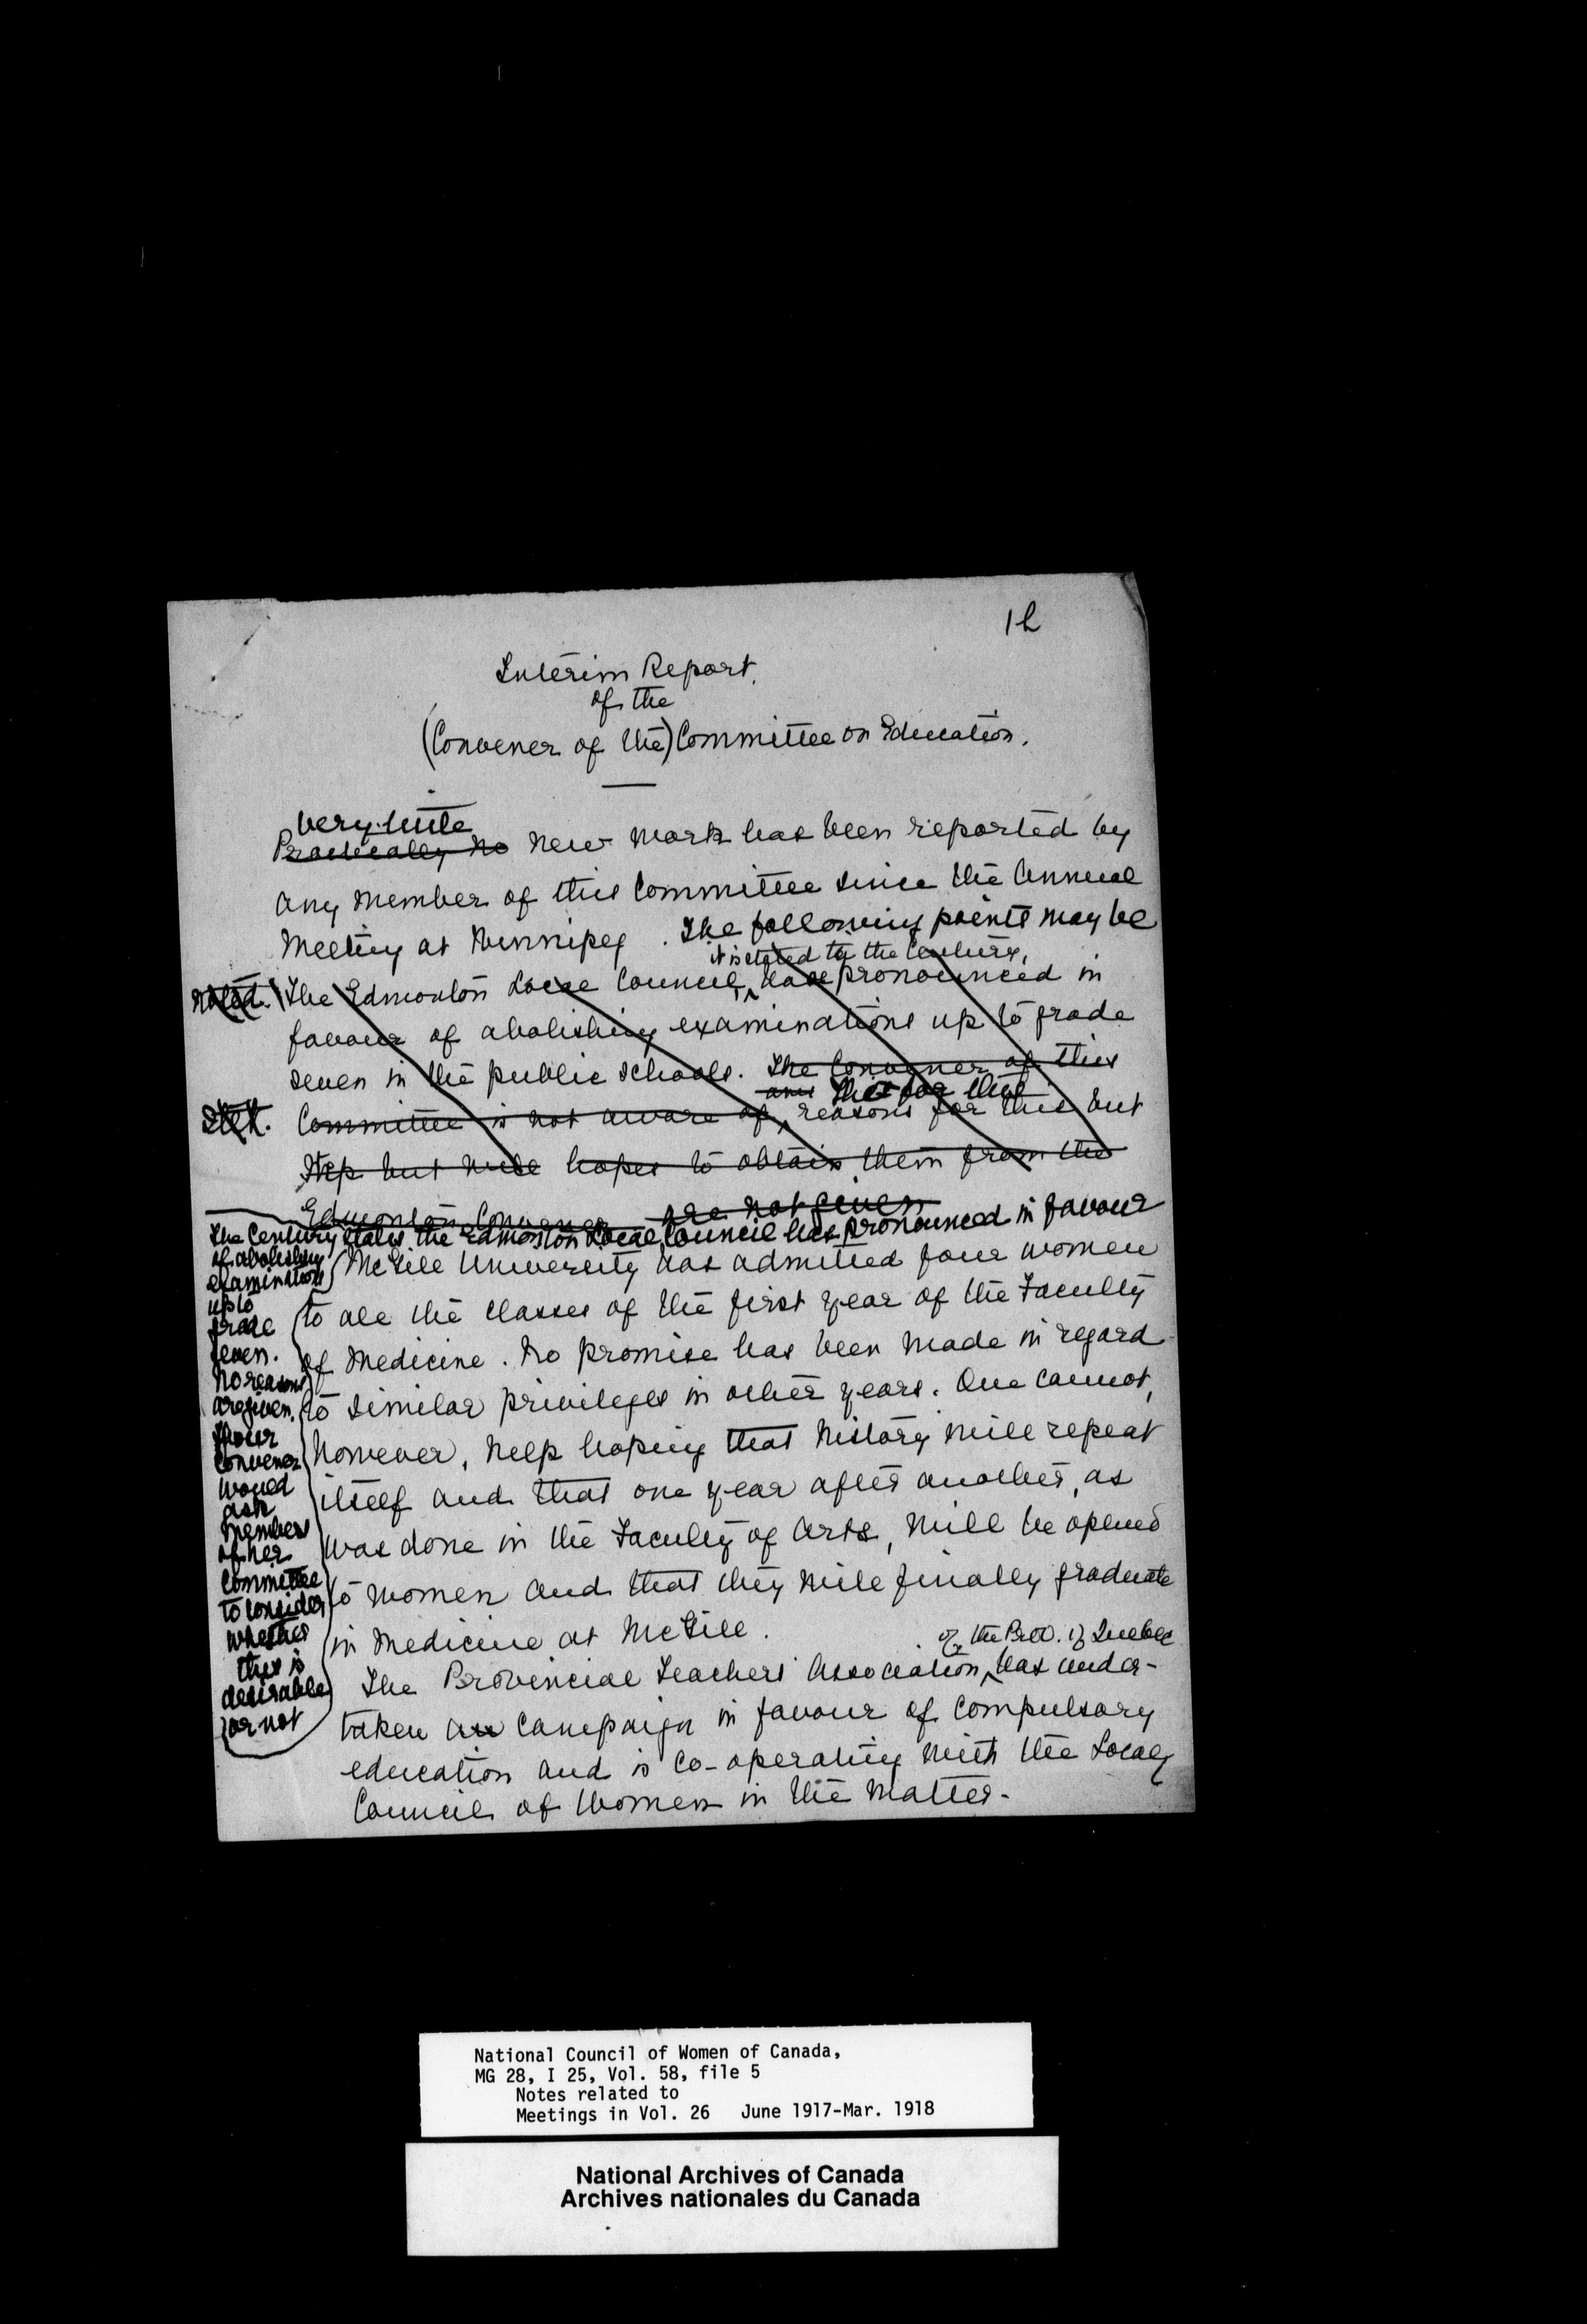 12
Interim Report.
of the
(Convener of the) Committee on Education.
Very little
Practically no new work has been reported by
any member of this Committee since the Annual
Meeting at Winnipeg. The following points may be
it is stated in the Century,
noted. The Edmonton Local Council, have pronounced in
favour of abolishing examinations up to grade
seven in the public schools. The Convener of this
The for this
Committee is not aware of reasons for this but
Step but will hopes to obtain them from the
Edmonton Convener are not given
The Century states the Edmonton Local Council has pronounced in favour
of abolishing
examinations
up to
grade
seven.
No reasons
are given.
Your
Convener
would
ask
members
of her
Committee
to consider
whether
this is
desirable
or not
McGill University has admitted four women
to all the classes of the first year of the Faculty
of Medicine. No promise has been made in regard
to similar privileges in other years. One cannot,
however, help hoping that history will repeat
itself and that one year after another, as
was done in the Faculty of Arts, will be opened
to women and that they will finally graduate
in Medicine at McGill.
of the Prov. of Quebec
The Provincial Teachers' Association has under-
taken a campaign in favour of compulsory
education and is co-operating with the Local
Council of Women in the matter.
National Council of Women of Canada,
MG 28, I 25, Vol. 58, file 5
Notes related to
Meetings in Vol. 26 June 1917-Mar. 1918
National Archives of Canada
Archives nationales du Canada